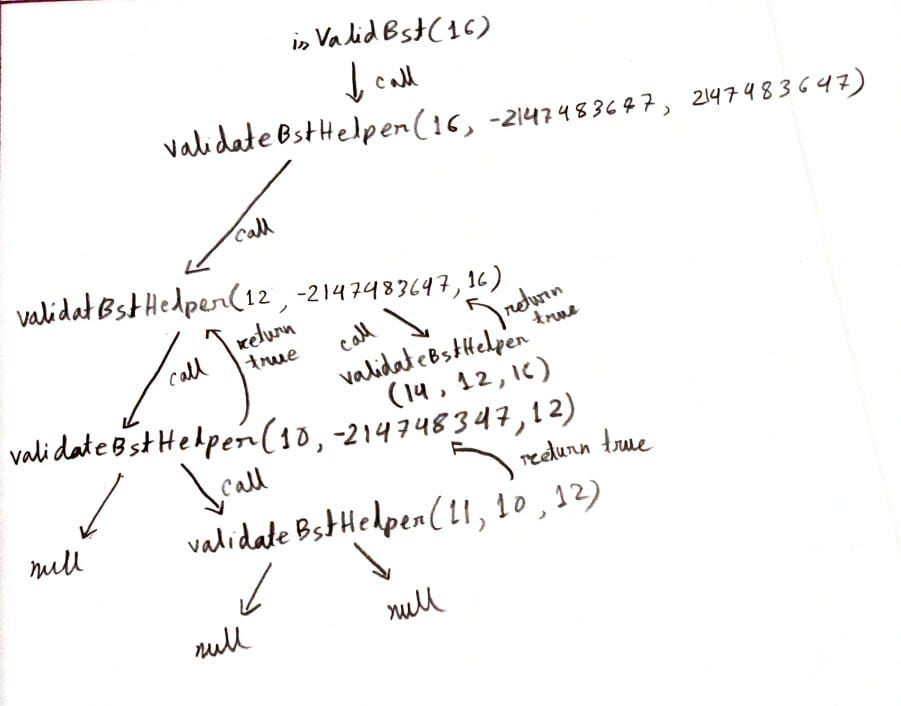 isValidBst(16)
call
validateBstHelper(16, -2147483647, 2147483647)
call
validatBstHelper(12, -2147483647, 16)
call
return
true
call
return
true
validateBstHelper
(14, 12, 16)
validateBstHelper(10, -214748347, 12)
call
return true
null
validateBstHelper(11, 10, 12)
null
null